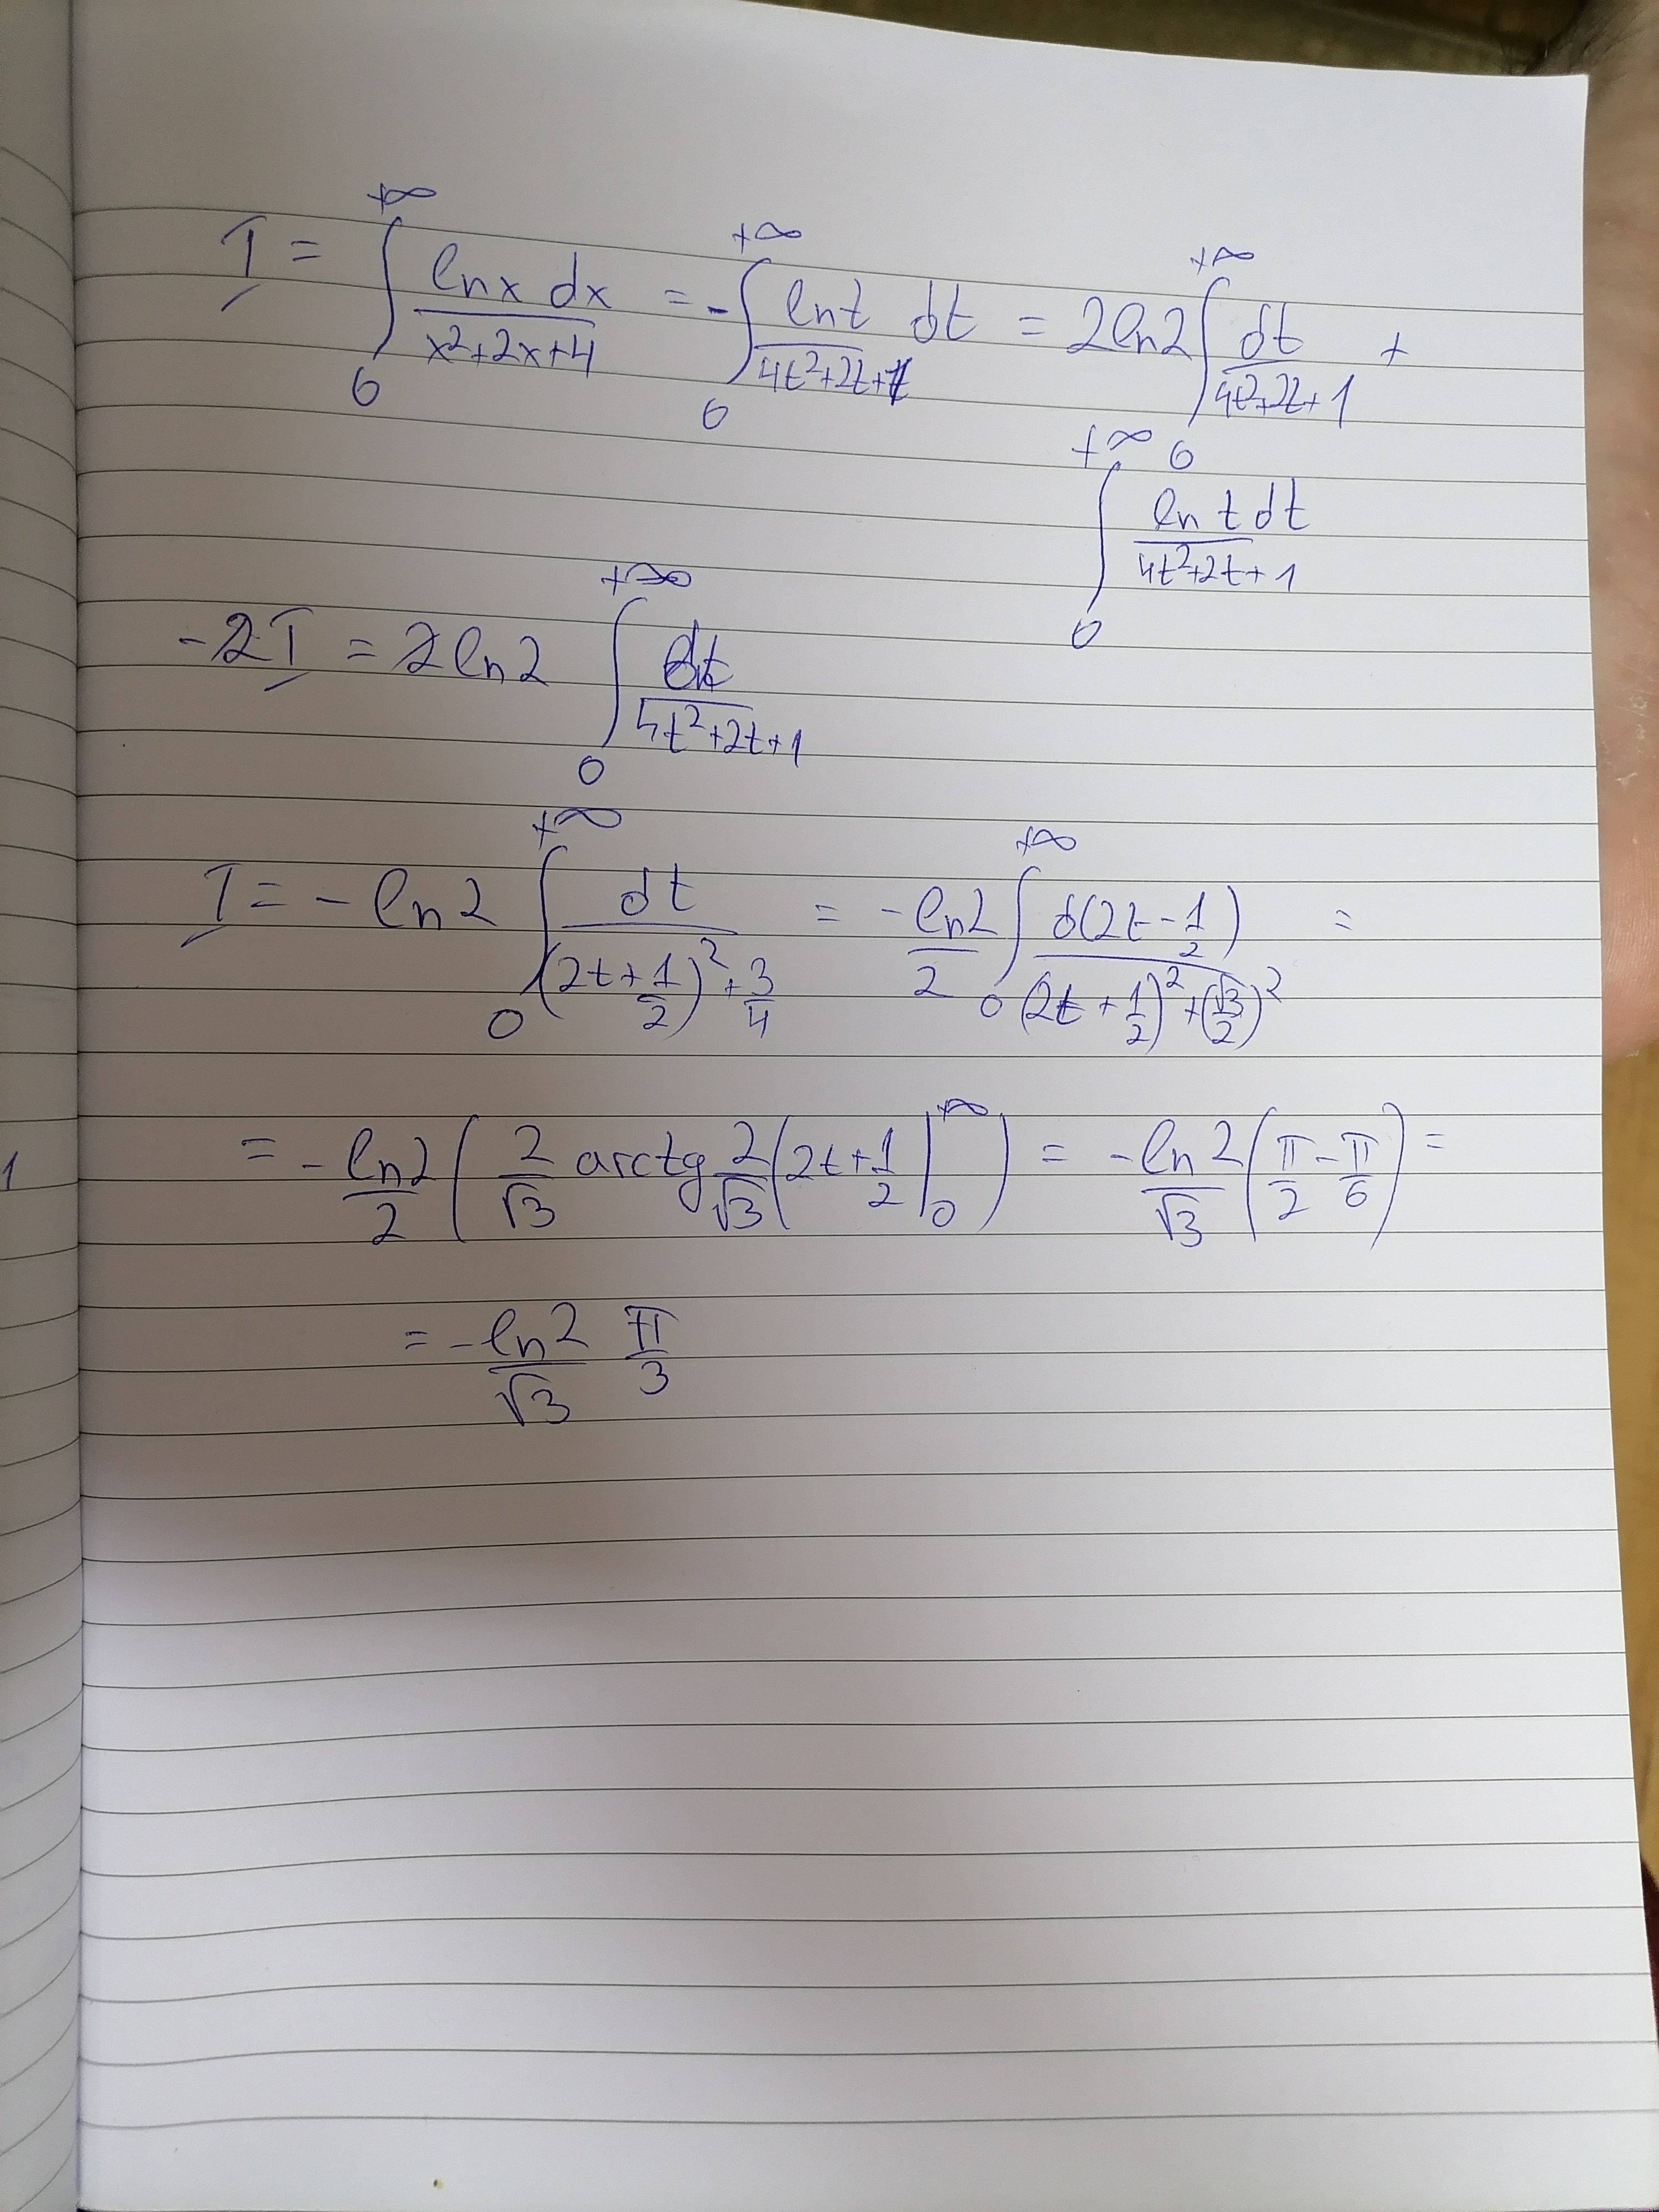 I = ∫₀^{+∞} lnx dx / (x²+2x+4) = -∫₀^{+∞} lnt / (4t²+2t+1) dt = 2ln2 ∫₀^{+∞} dt / (4t²+2t+1) +
∫₀^{+∞} ln t dt / (4t²+2t+1)
-2I = 2ln2 ∫₀^{+∞} dt / (4t²+2t+1)
I = -ln2 ∫₀^{+∞} dt / ((2t+1/2)²+3/4) = -ln2/2 ∫₀^{+∞} d(2t-1/2) / ((2t+1/2)²+(√3/2)²) =
1 = -ln2/2 (2/√3 arctg 2/√3 (2t+1/2 |₀^{+∞}) = -ln2/√3 (π/2 - π/6) =
= -ln2/√3 π/3